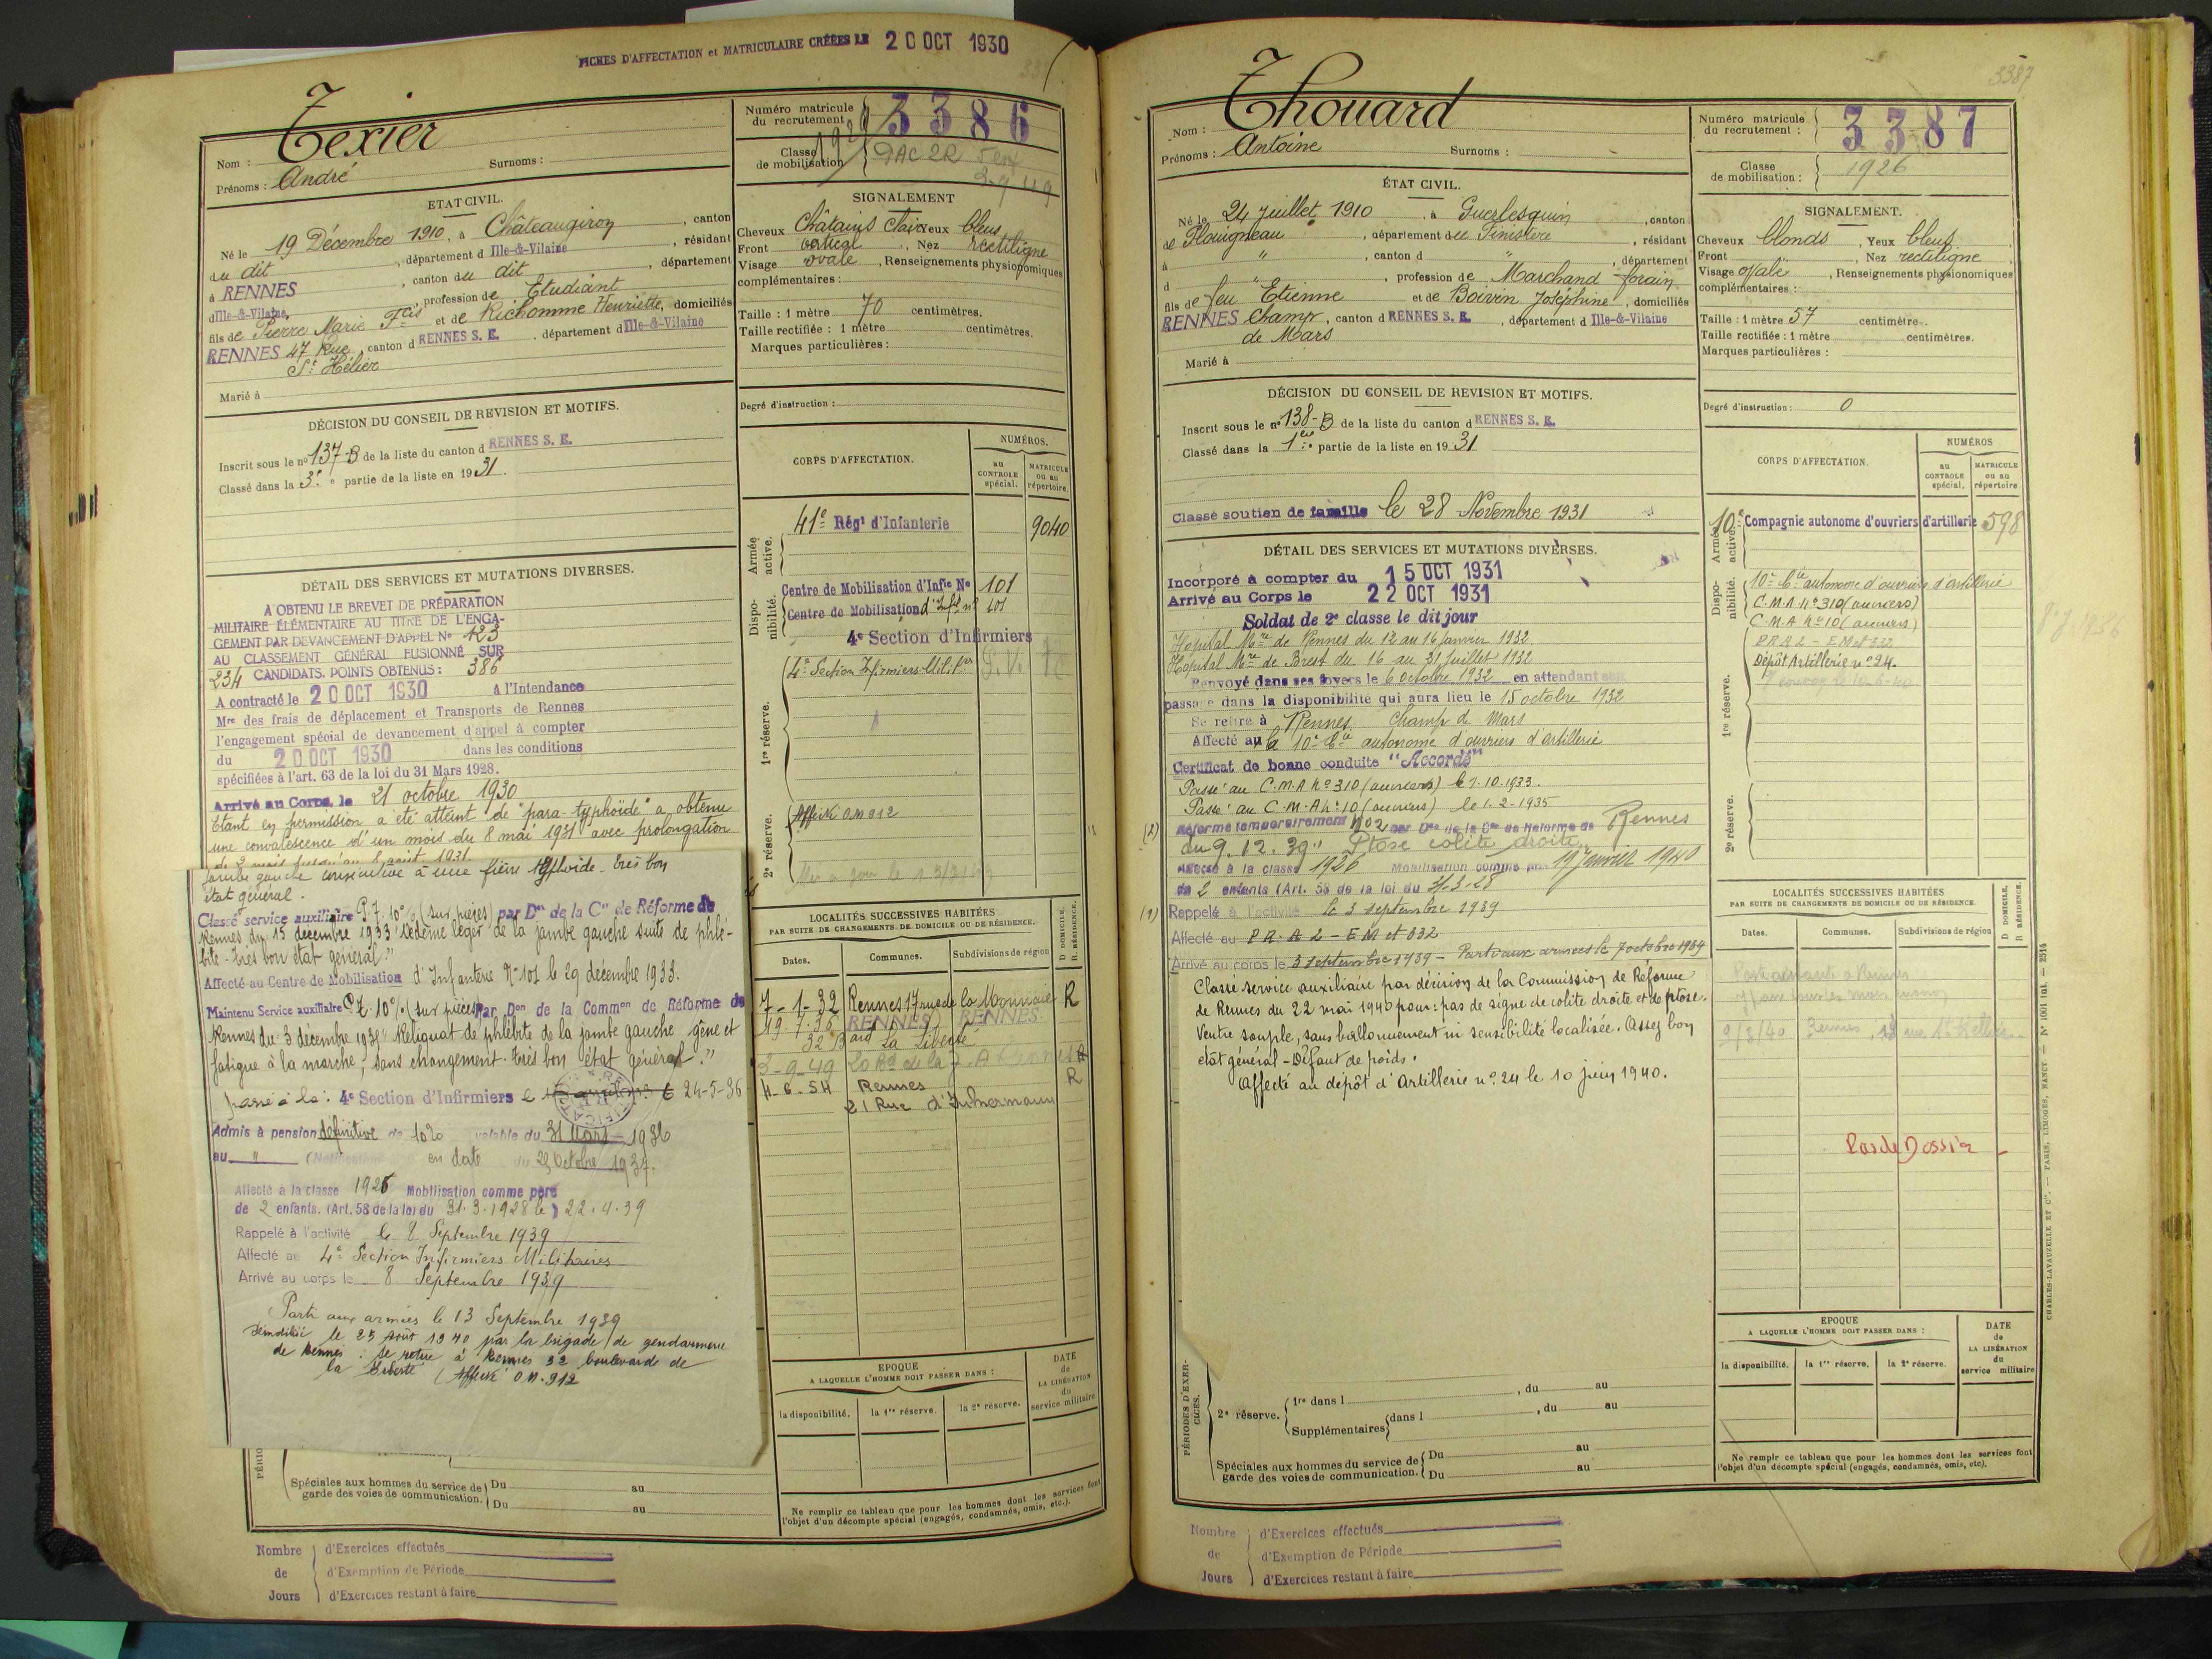 FICHES D'AFFECTATION et MATRICULAIRE CRÉÉES LE 20 OCT 1930
Nom : Texier
Prénoms : André Surnoms :
Numéro matricule du recrutement 3386
Classe de mobilisation 9AC 2R
3-9 49
ETAT CIVIL.
Né le 19 Décembre 1910, à Châteaugiron, canton
du dit, département d Ille-&-Vilaine, résidant
à RENNES, canton du dit, département
d Ille-&-Vilaine, profession de Etudiant
fils de Pierre Marie Fcis et de Richomme Henriette, domiciliés
RENNES 47 Rue, canton d RENNES S. E. département d Ille-&-Vilaine
St Hélier
Marié à
SIGNALEMENT
Cheveux Châtains clair Yeux bleus
Front vertical, Nez rectiligne
Visage ovale, Renseignements physionomiques
complémentaires :
Taille : 1 mètre 70 centimètres.
Taille rectifiée : 1 mètre centimètres.
Marques particulières :
Degré d'instruction :
DÉCISION DU CONSEIL DE REVISION ET MOTIFS.
Inscrit sous le n° 137-B de la liste du canton d RENNES S. E.
Classé dans la 3e partie de la liste en 1931.
CORPS D'AFFECTATION.
NUMÉROS.
au CONTROLE spécial.
MATRICULE ou au répertoire.
Armée active.
41e Régt d'Infanterie 9040
Disponibilité.
Centre de Mobilisation d'Infie N° 101
Centre de Mobilisation d'Infie n° 101
4e Section d'Infirmiers
1re réserve.
4e Section Infirmiers Milit.res
2e réserve.
Affecté OM 912
DÉTAIL DES SERVICES ET MUTATIONS DIVERSES.
A OBTENU LE BREVET DE PRÉPARATION
MILITAIRE ÉLÉMENTAIRE AU TITRE DE L'ENGA-
GEMENT PAR DEVANCEMENT D'APPEL N° 123
AU CLASSEMENT GÉNÉRAL FUSIONNÉ SUR
234 CANDIDATS. POINTS OBTENUS : 386
A contracté le 20 OCT 1930 A l'Intendance
Mre des frais de déplacement et Transports de Rennes
l'engagement spécial de devancement d'appel à compter
du 20 OCT 1930 dans les conditions
spécifiées à l'art. 63 de la loi du 31 Mars 1928.
Arrivé au Corps, le 21 octobre 1930
Etant en permission a été atteint de "para-typhoïde" a obtenu
une convalescence d'un mois du 8 mai 1931 avec prolongation
de 2 mois jusqu'au 8 août 1931.
jambe gauche consécutive à une fièvre typhoïde. très bon
état général.
Classé service auxiliaire P.7. 10% (sur pièces) par Don de la Con de Réforme de
Rennes du 15 décembre 1933 "oedème léger de la jambe gauche suite de phlé-
bite - très bon état général."
Affecté au Centre de Mobilisation d'Infanterie N° 101 le 29 décembre 1933.
Maintenu Service auxiliaire P.7. 10% (sur pièces) Par Don de la Common de Réforme de
Rennes du 3 décembre 193 "Reliquat de phlébite de la jambe gauche, gêne et
fatigue à la marche, sans changement. très bon état général."
passé à la : 4e Section d'Infirmiers le 24-5-36
Admis à pension définitive de 10% valable du 31 Mars 1936
au " en date du 23 Octobre 1937.
Affecté à la classe 1926 Mobilisation comme père
de 2 enfants. (Art. 58 de la loi du 31.3.1928 le) 22.4.39
Rappelé à l'activité le 8 Septembre 1939
Affecté au 4e Section Infirmiers Militaires
Arrivé au corps le 8 Septembre 1939
Parti aux armées le 13 Septembre 1939
Démobilisé le 25 Août 1940 par la brigade de gendarmerie
de Rennes : se retire à Rennes 32 boulevard de
la Liberté (Affecté OM. 912
LOCALITÉS SUCCESSIVES HABITÉES
PAR SUITE DE CHANGEMENTS DE DOMICILE OU DE RÉSIDENCE.
Dates. Communes. Subdivisions de région
D DOMICILE. R RÉSIDENCE.
7-1-32 Rennes 17 rue de la Monnaie R
19-7-36 RENNES RENNES
32 Bard La Liberté
3-9-49
4-6-54 Rennes R
21 Rue d'Inkermann
EPOQUE
A LAQUELLE L'HOMME DOIT PASSER DANS :
la disponibilité. la 1re réserve. la 2e réserve.
DATE de LA LIBÉRATION du service militaire
Spéciales aux hommes du service de garde des voies de communication. Du au
Du au
Ne remplir ce tableau que pour les hommes dont les services font
l'objet d'un décompte spécial (engagés, condamnés, omis, etc.).
Nombre de Jours
d'Exercices effectués
d'Exemption de Période
d'Exercices restant à faire
3387
Nom : Thouard
Prénoms : Antoine Surnoms :
Numéro matricule du recrutement : 3387
Classe de mobilisation : 1926
ÉTAT CIVIL.
Né le 24 Juillet 1910, à Guerlesquin, canton
de Plouigneau, département du Finistère, résidant
à ", canton d ", département
d ", profession de Marchand forain
fils de feu Etienne et de Boivin Joséphine, domiciliés
RENNES Champ, canton d RENNES S. E., département d Ille-&-Vilaine
de Mars
Marié à
SIGNALEMENT.
Cheveux blonds, Yeux bleus
Front, Nez rectiligne
Visage ovale, Renseignements physionomiques
complémentaires :
Taille : 1 mètre 57 centimètres.
Taille rectifiée : 1 mètre centimètres.
Marques particulières :
Degré d'instruction : 0
DÉCISION DU CONSEIL DE REVISION ET MOTIFS.
Inscrit sous le n° 138-B de la liste du canton d RENNES S. E.
Classé dans la 1ère partie de la liste en 1931
Classé soutien de famille le 28 Novembre 1931
CORPS D'AFFECTATION.
NUMÉROS
au CONTROLE spécial.
MATRICULE ou au répertoire.
Armée active.
10e Compagnie autonome d'ouvriers d'artillerie 598
Disponibilité.
10e Cie autonome d'ouvriers d'artillerie
C.M.A. n° 310 (ouvriers)
C.M.A n° 10 (ouvriers)
1re réserve.
P.R.A.L - EM et 032
Dépôt Artillerie n° 24.
2e réserve.
DÉTAIL DES SERVICES ET MUTATIONS DIVERSES.
Incorporé à compter du 15 OCT 1931
Arrivé au Corps le 22 OCT 1931
Soldat de 2e classe le dit jour
Hôpital Mre de Rennes du 12 au 16 janvier 1932
Hôpital Mre de Brest du 16 au 31 juillet 1932
Renvoyé dans ses foyers le 6 octobre 1932 en attendant son
passage dans la disponibilité qui aura lieu le 15 octobre 1932
Se retire à Rennes Champ de Mars
Affecté au la 10e Cie autonome d'ouvriers d'artillerie
Certificat de bonne conduite "Accordé"
Passé au C.M.A n° 310 (ouvriers) le 1.10.1933.
Passé au C.M.A n° 10 (ouvriers) le 1.2.1935
(2) Réformé temporairement N° 2 par Don de la Con de Réforme de Rennes
du 9.12.39 "Ptose colite droite"
Affecté à la classe 1926 Mobilisation comme père 19 Janvier 1940
de 2 enfants (Art. 58 de la loi du 31-3-28
(1) Rappelé à l'activité le 3 septembre 1939
Affecté au P.R.A.L - EM et 032
Arrivé au corps le 3 septembre 1939 - Parti aux armées le 7 octobre 1939
Classé service auxiliaire par décision de la Commission de Réforme
de Rennes du 22 mai 1940 pour : pas de signe de colite droite et de ptose.
Ventre souple, sans ballonnement ni sensibilité localisée. Assez bon
état général - Défaut de poids.
Affecté au dépôt d'Artillerie n° 24 le 10 juin 1940.
LOCALITÉS SUCCESSIVES HABITÉES
PAR SUITE DE CHANGEMENTS DE DOMICILE OU DE RÉSIDENCE.
Dates. Communes. Subdivisions de région
D DOMICILE. R RÉSIDENCE.
Rennes
Pas de Dossier
EPOQUE
A LAQUELLE L'HOMME DOIT PASSER DANS :
la disponibilité. la 1re réserve. la 2e réserve.
DATE de LA LIBÉRATION du service militaire
PÉRIODES D'EXERCICES.
2e réserve. 1re dans l, du au
Supplémentaires dans l, du au
Spéciales aux hommes du service de garde des voies de communication. Du au
Du au
Ne remplir ce tableau que pour les hommes dont les services font
l'objet d'un décompte spécial (engagés, condamnés, omis, etc).
CHARLES-LAVAUZELLE ET Cie. — PARIS, LIMOGES, NANCY — N° 1001 int. — 2514
Nombre de Jours
d'Exercices effectués
d'Exemption de Période
d'Exercices restant à faire